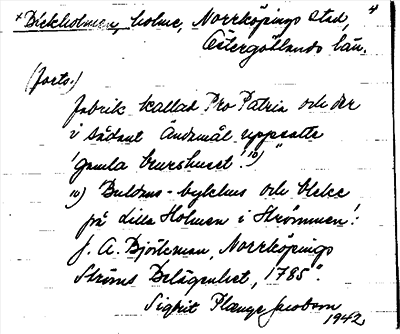 *Bleckholmen, holme, Norrköpings stad, 4
Östergötlands län.
(forts.)
fabrik kallad Pro Patria och der
i sådant ändamål uppsatte
gamla brurshuset!"10)
10) "Buldans-bykhus och Bleke
på Lilla Holmen i Strömmen":
J. A. Björkman, Norrköpings
Ströms Belägenhet, 1785".
Sigfrid Plange Jacobson
1942